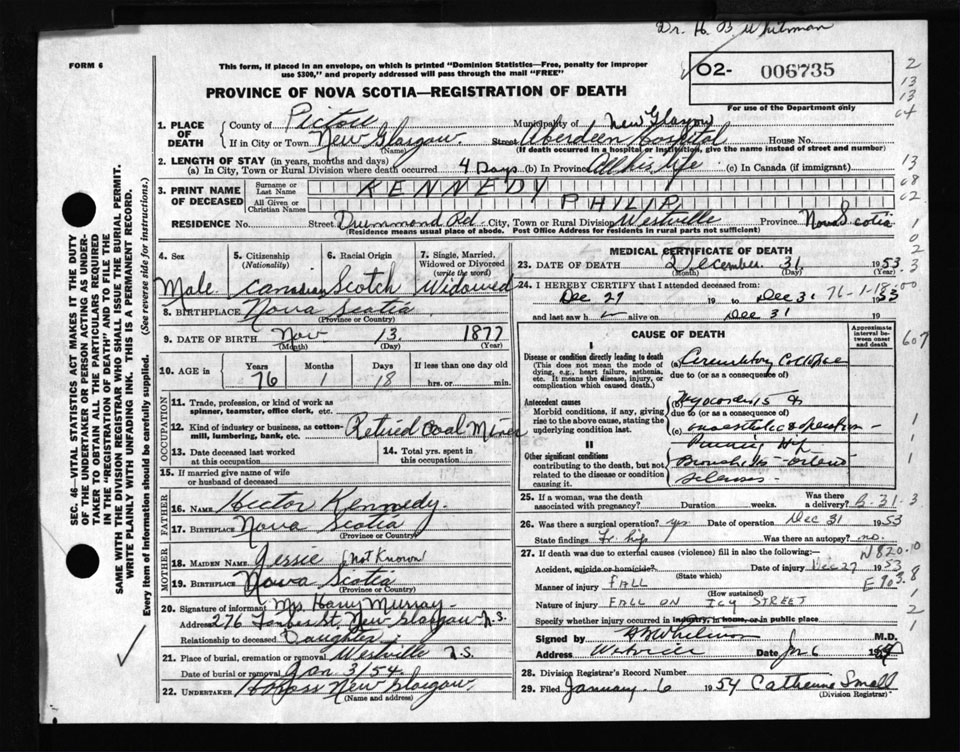 Dr. H. B. Whitman
FORM 6
This form, if placed in an envelope, on which is printed "Dominion Statistics—Free, penalty for improper
use $300," and properly addressed will pass through the mail "FREE"
PROVINCE OF NOVA SCOTIA—REGISTRATION OF DEATH
02- 006735
For use of the Department only
2
13
13
04
13
08
02
1. PLACE OF DEATH
County of Pictou Municipality of New Glasgow
If in City or Town New Glasgow Street Aberdeen Hospital House No.
(Name) (If death occurred in a hospital or institution, give the name instead of street and number)
2. LENGTH OF STAY (in years, months and days)
(a) In City, Town or Rural Division where death occurred 4 Days (b) In Province All his life (c) In Canada (if immigrant)
3. PRINT NAME OF DECEASED
Surname or Last Name KENNEDY
All Given or Christian Names PHILIP
RESIDENCE No. Street Drummond Rd City, Town or Rural Division Westville Province Nova Scotia
(Residence means usual place of abode. Post Office Address for residents in rural parts not sufficient)
4. Sex Male
5. Citizenship (Nationality) Canadian
6. Racial Origin Scotch
7. Single, Married, Widowed or Divorced (write the word) Widowed
8. BIRTHPLACE Nova Scotia
(Province or Country)
9. DATE OF BIRTH Nov 13 1877
(Month) (Day) (Year)
10. AGE in Years 76 Months 1 Days 18 If less than one day old hrs. or min.
OCCUPATION
11. Trade, profession, or kind of work as spinner, teamster, office clerk, etc.
12. Kind of industry or business, as cotton-mill, lumbering, bank, etc. Retired Coal Miner
13. Date deceased last worked at this occupation
14. Total yrs. spent in this occupation
15. If married give name of wife or husband of deceased
FATHER
16. NAME Hector Kennedy
17. BIRTHPLACE Nova Scotia
(Province or Country)
MOTHER
18. MAIDEN NAME Jessie (Not Known)
19. BIRTHPLACE Nova Scotia
(Province or Country)
20. Signature of informant Mrs Harry Murray
Address 276 Forbes St. New Glasgow N.S.
Relationship to deceased Daughter
21. Place of burial, cremation or removal Westville N.S.
Date of burial or removal Jan 3/54
22. UNDERTAKER New Glasgow
(Name and address)
MEDICAL CERTIFICATE OF DEATH
23. DATE OF DEATH December 31 1953
(Month) (Day) (Year)
24. I HEREBY CERTIFY that I attended deceased from:
Dec 27 19 to Dec 31 1953
76-1-18
and last saw h alive on Dec 31 19
CAUSE OF DEATH
Approximate interval between onset and death
I
Disease or condition directly leading to death
(This does not mean the mode of dying, e.g., heart failure, asthenia, etc. It means the disease, injury, or complication which caused death.)
(a) Circulatory Collapse
due to (or as a consequence of)
Antecedent causes
Morbid conditions, if any, giving rise to the above cause, stating the underlying condition last.
due to (or as a consequence of)
(c)
II
Other significant conditions
contributing to the death, but not related to the disease or condition causing it.
25. If a woman, was the death associated with pregnancy? Duration weeks. Was there a delivery?
26. Was there surgical operation? yes Date of operation Dec 31 1953
State findings Fr. hip Was there an autopsy? no.
27. If death was due to external causes (violence) fill in also the following:—
Accident, suicide or homicide? Date of injury Dec 27 1953
(State which)
Manner of injury FALL
(How sustained)
Nature of injury FALL ON ICY STREET
Specify whether injury occurred in industry, in home, or in public place
N820.0
E903.8
Signed by H B Whitman M.D.
Address Westville Date Jan 6 1954
28. Division Registrar's Record Number
29. Filed January 6 1954 Catherine Small
(Division Registrar)
SEC. 46—VITAL STATISTICS ACT MAKES IT THE DUTY
OF THE UNDERTAKER OR PERSON ACTING AS UNDERTAKER TO OBTAIN ALL THE PARTICULARS REQUIRED
IN THE "REGISTRATION OF DEATH" AND TO FILE THE
SAME WITH THE DIVISION REGISTRAR WHO SHALL ISSUE THE BURIAL PERMIT.
WRITE PLAINLY WITH UNFADING INK. THIS IS A PERMANENT RECORD.
Every item of information should be carefully supplied. (See reverse side for instructions.)
607